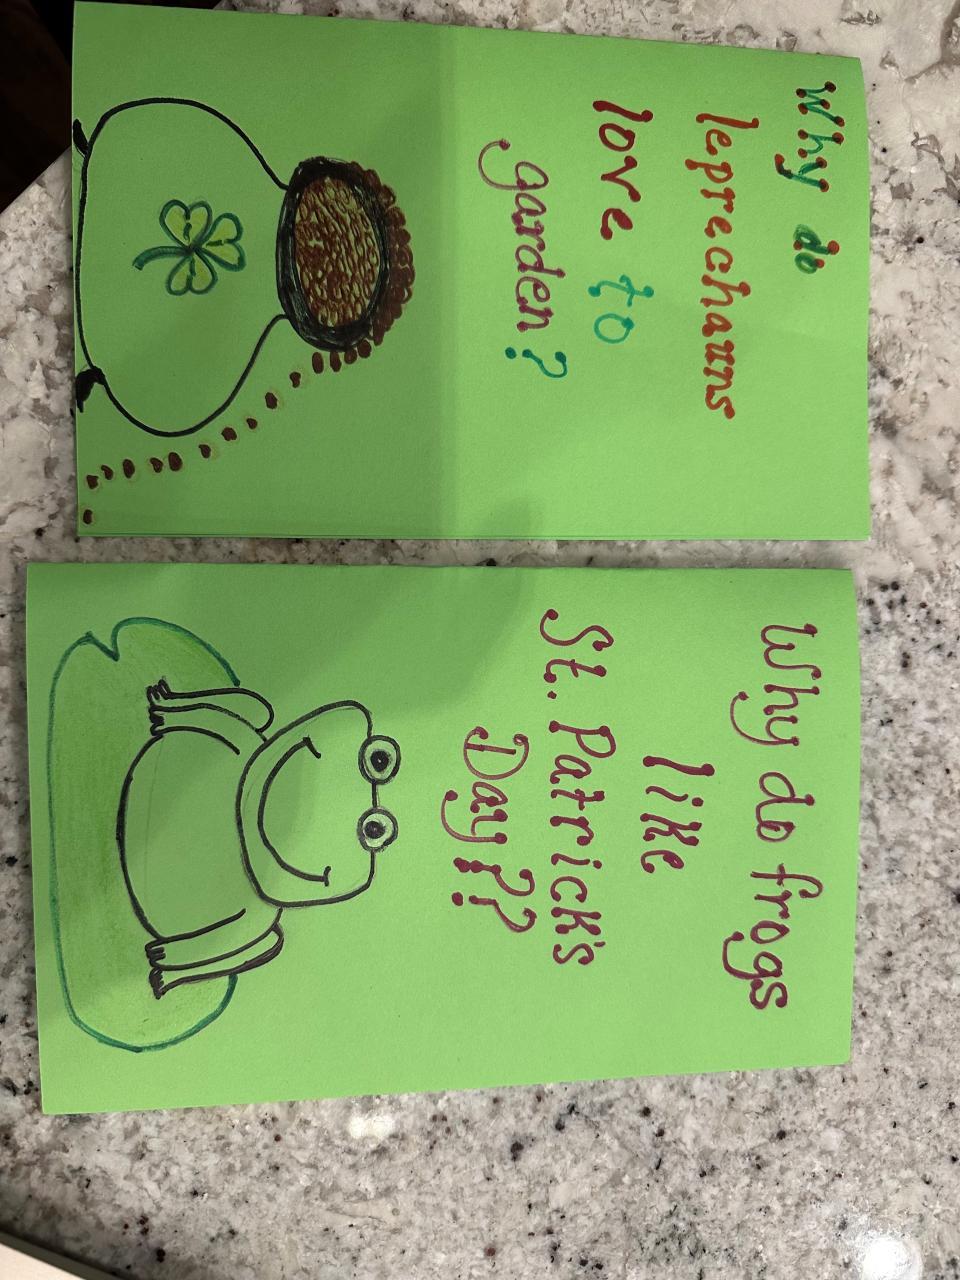 Why do
leprechauns
love to
garden?
Why do frogs
like
St. Patrick's
Day??